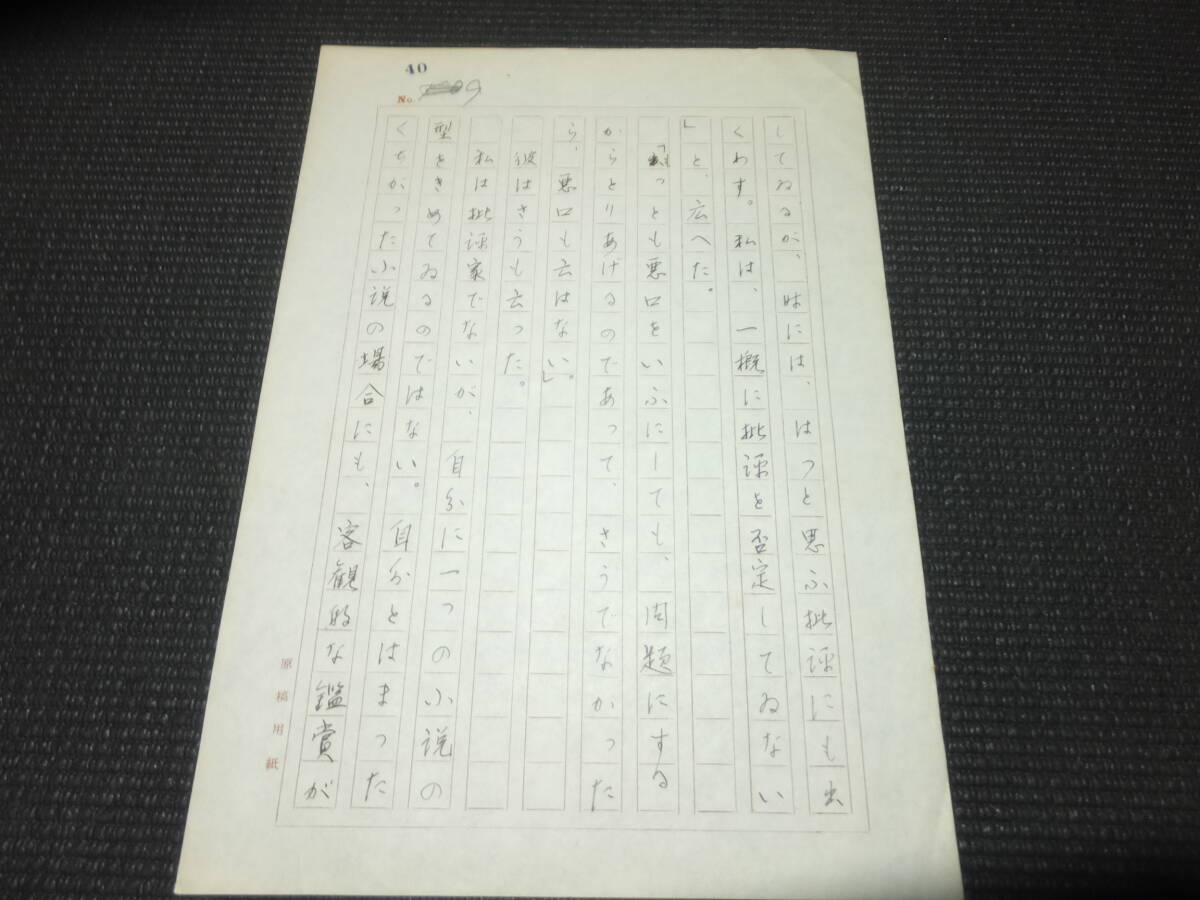 40
No. 9
してゐるが、時には、はつと思ふ批評にも出
くわす。私は、一概に批評を否定してゐない
」と、広へた。
「もっとも悪口をいふにしても、問題にする
からとりあげるのであって、さうでなかった
ら、悪口も云はない」。
彼はさうも云った。
私は批評家でないが、自分に一つの小説の
型をきめてゐるのではない。自分とはまった
くちがった小説の場合にも、客観的な鑑賞が
原稿用紙